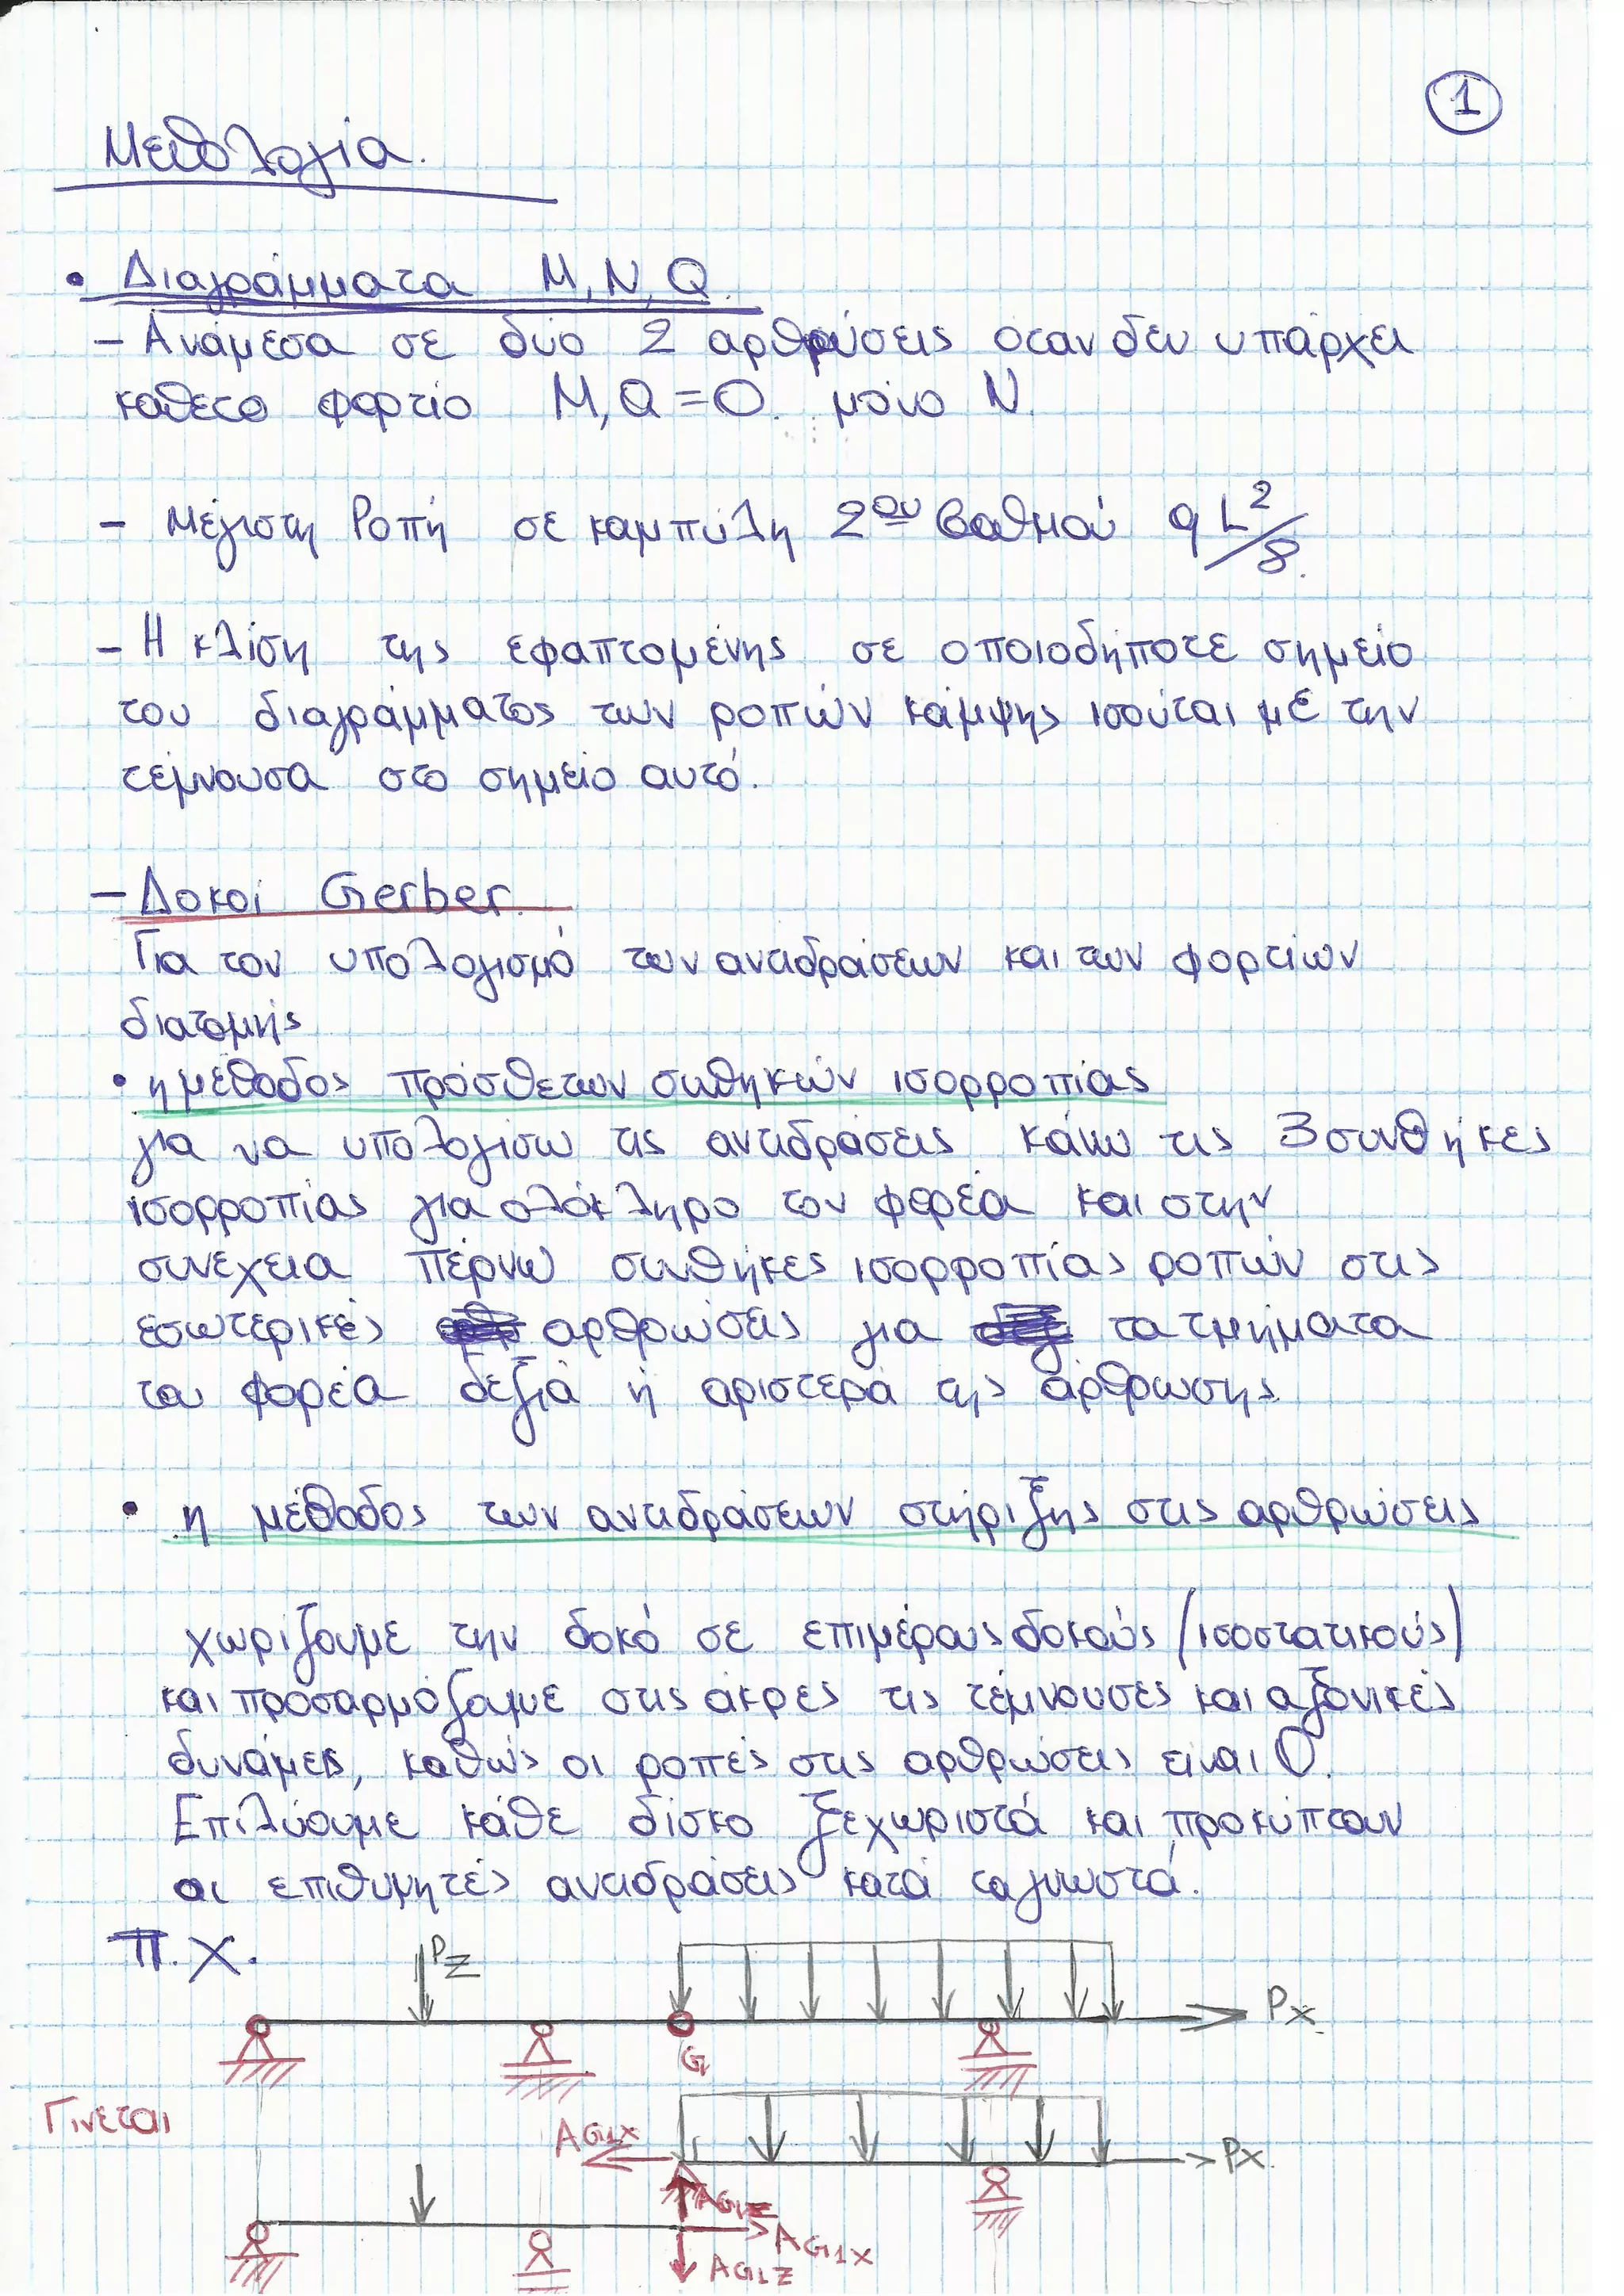 1
Μεθολογία.
• Διαγράμματα Μ, Ν, Q.
- Ανάμεσα σε δυο 2 αρθρώσεις όταν δεν υπάρχει
κάθετο φορτίο Μ, Q = 0. μόνο Ν.
- Μέγιστη Ροπή σε καμπύλη 2ου βαθμού qL²/8.
- Η κλίση της εφαπτομένης σε οποιοδήποτε σημείο
του διαγράμματος των ροπών κάμψης ισούται με την
τέμνουσα στο σημείο αυτό.
- Δοκοί Gerber.
Για τον υπολογισμό των αντιδράσεων και των φορτίων
διατομής
• η μέθοδος πρόσθετων συθηκών ισορροπίας
για να υπολογίσω τις αντιδράσεις κάνω τις 3 συνθήκες
ισορροπίας για ολόκληρο τον φορέα και στην
συνέχεια πέρνω συνθήκες ισορροπίας ροπών στις
εσωτερικές αρθρώσεις για τα τμήματα
του φορέα δεξιά ή αριστερά της άρθρωσης.
• η μέθοδος των αντιδράσεων στήριξης στις αρθρώσεις
χωρίζουμε την δοκό σε επιμέρους δοκούς (ισοστατικούς)
και προσαρμόζουμε στις άκρες τις τέμνουσες και αξονικές
δυνάμεις, καθώς οι ροπές στις αρθρώσεις είναι 0.
Επιλύουμε κάθε δίσκο ξεχωριστά και προκύπτουν
οι επιθυμητές αντιδράσεις κατά τα γνωστά.
Π.Χ.
Pz
Px
G
Γίνεται
AG1X
Px
AG1Z
AG1X
AG1Z